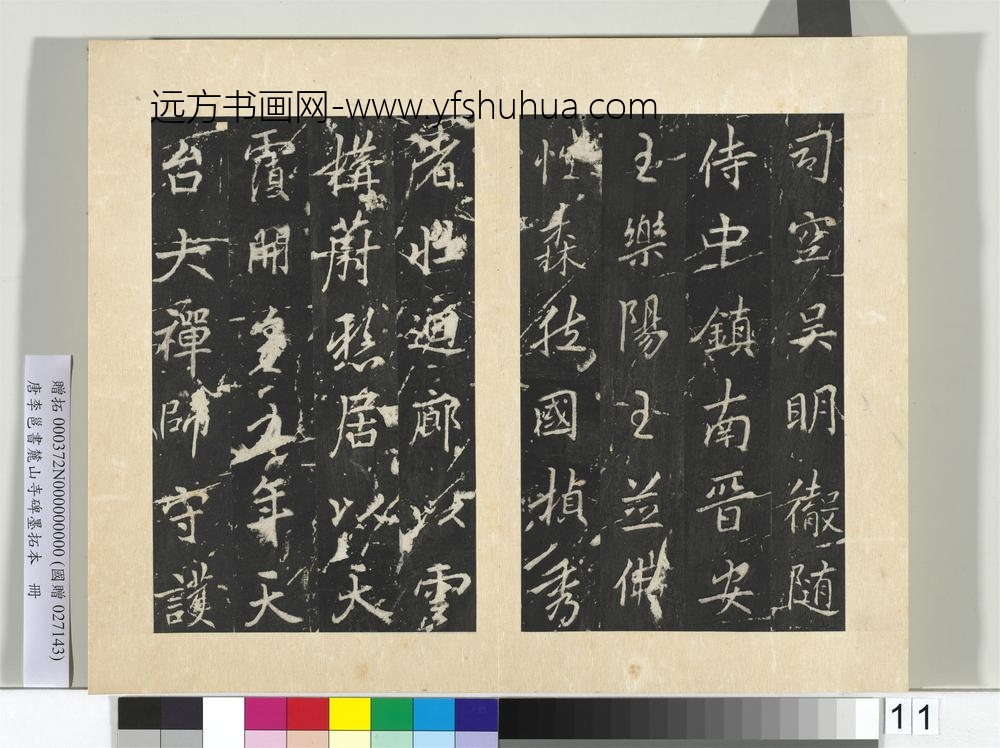 远方书画网-www.yfshuhua.com
司空吴明徹随
侍中鎮南晋安
王樂陽王並佛
性森國楨秀
者迴廊以雲
構蔚懸居以天
覆開皇九年天
台大禪師守護
贈拓 000372N000000000 (國贈 027143)
唐李邕書麓山寺碑墨拓本 冊
11